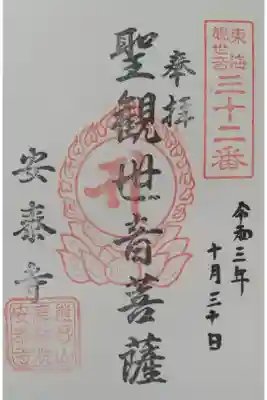 東海
観世音
三十二番
奉拝
聖観世音菩薩
令和三年
十月三十日
安泰寺